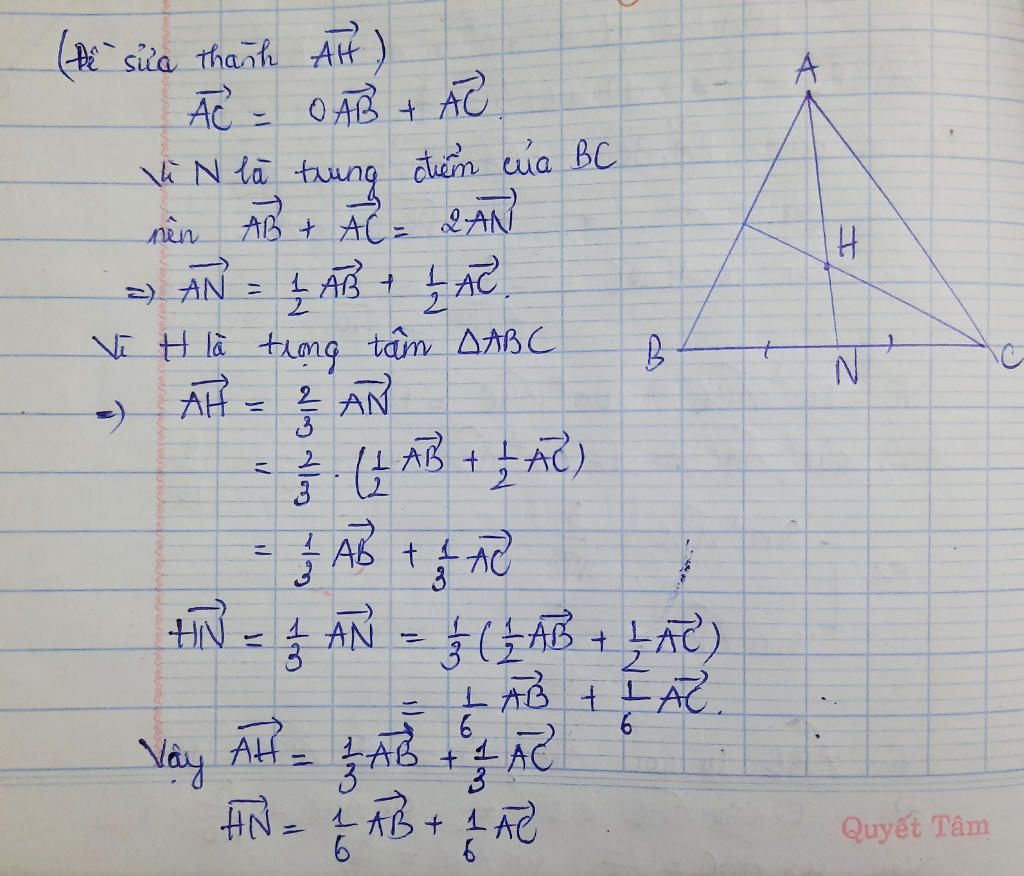 (Đề sửa thành \overrightarrow{AH})
\overrightarrow{AC} = 0\overrightarrow{AB} + \overrightarrow{AC}.
Vì N là trung điểm của BC
nên \overrightarrow{AB} + \overrightarrow{AC} = 2\overrightarrow{AN}
=> \overrightarrow{AN} = \frac{1}{2}\overrightarrow{AB} + \frac{1}{2}\overrightarrow{AC}.
Vì H là trọng tâm ΔABC
=> \overrightarrow{AH} = \frac{2}{3}\overrightarrow{AN}
= \frac{2}{3}.(\frac{1}{2}\overrightarrow{AB} + \frac{1}{2}\overrightarrow{AC})
= \frac{1}{3}\overrightarrow{AB} + \frac{1}{3}\overrightarrow{AC}
\overrightarrow{HN} = \frac{1}{3}\overrightarrow{AN} = \frac{1}{3}(\frac{1}{2}\overrightarrow{AB} + \frac{1}{2}\overrightarrow{AC})
= \frac{1}{6}\overrightarrow{AB} + \frac{1}{6}\overrightarrow{AC}.
Vậy \overrightarrow{AH} = \frac{1}{3}\overrightarrow{AB} + \frac{1}{3}\overrightarrow{AC}
\overrightarrow{HN} = \frac{1}{6}\overrightarrow{AB} + \frac{1}{6}\overrightarrow{AC}
A
H
B
N
C
Quyết Tâm